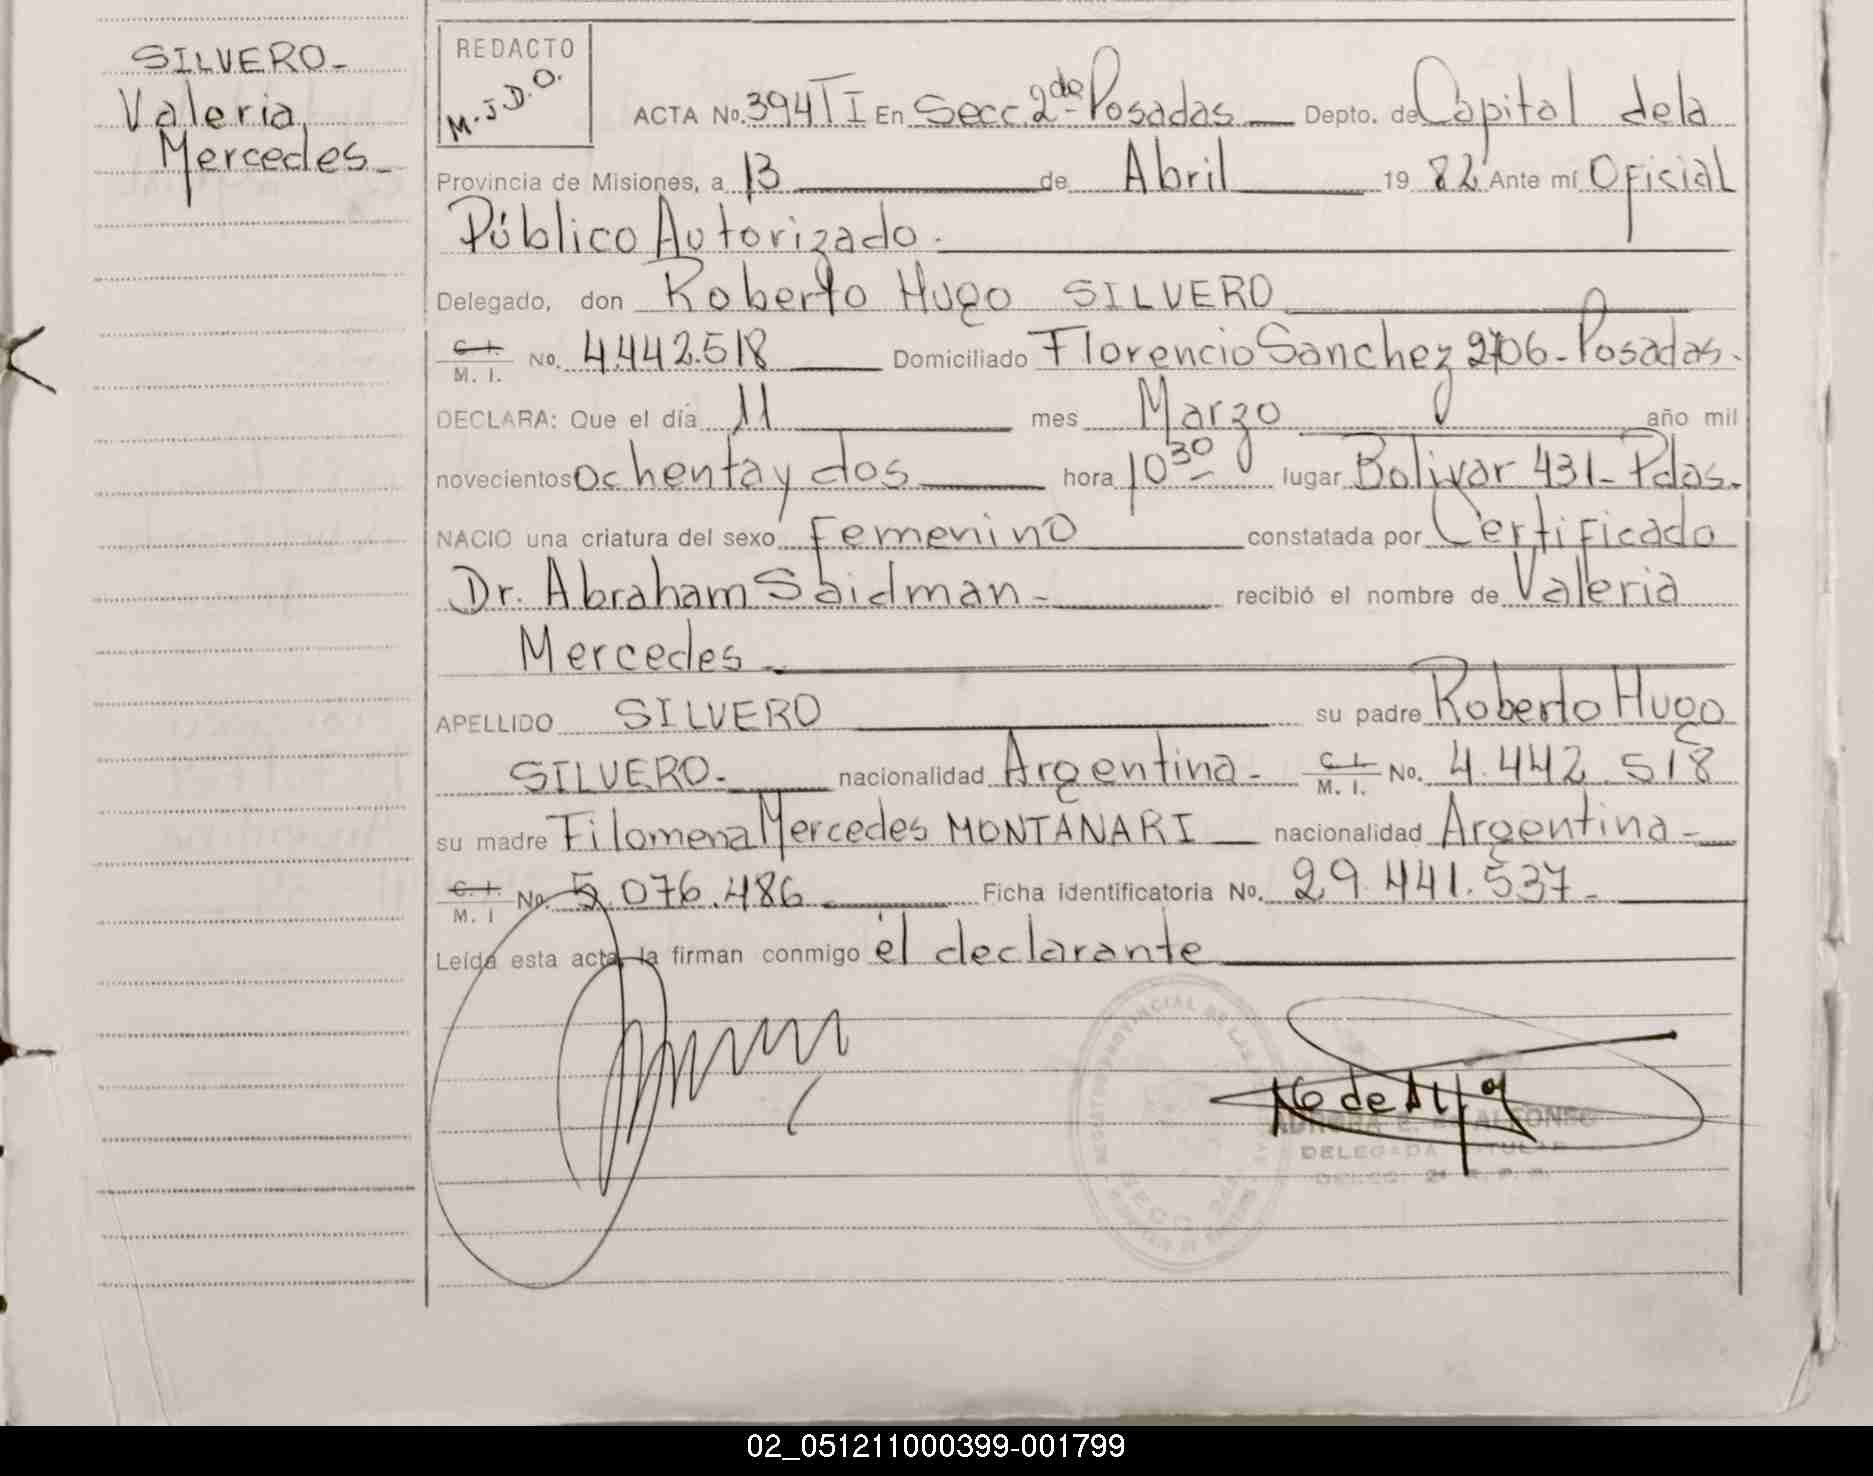 SILVERO-
Valeria
Mercedes-
REDACTO
M.J.D.O.
ACTA No. 394 TI En Secc. 2da Posadas Depto. de Capital dela
Provincia de Misiones, a 13 de Abril 1982 Ante mí Oficial
Público Autorizado.
Delegado, don Roberto Hugo SILVERO
C. I. M. I. No. 4.442.518 Domiciliado Florencio Sanchez 2706-Posadas.
DECLARA: Que el día 11 mes Marzo año mil
novecientos ochenta y dos hora 10 30 lugar Bolivar 431- Pdas.
NACIO una criatura del sexo Femenino constatada por Certificado
Dr. Abraham Saidman- recibió el nombre de Valeria
Mercedes-
APELLIDO SILVERO su padre Roberto Hugo
SILVERO- nacionalidad Argentina- C. I. M. I. No. 4.442.518
su madre Filomena Mercedes MONTANARI nacionalidad Argentina-
C. I. M. I No. 5.076.486 Ficha identificatoria No. 29.441.537-
Leída esta acta, la firman conmigo el declarante
ALFONSO
DELEGADA TITULAR
02_051211000399-001799